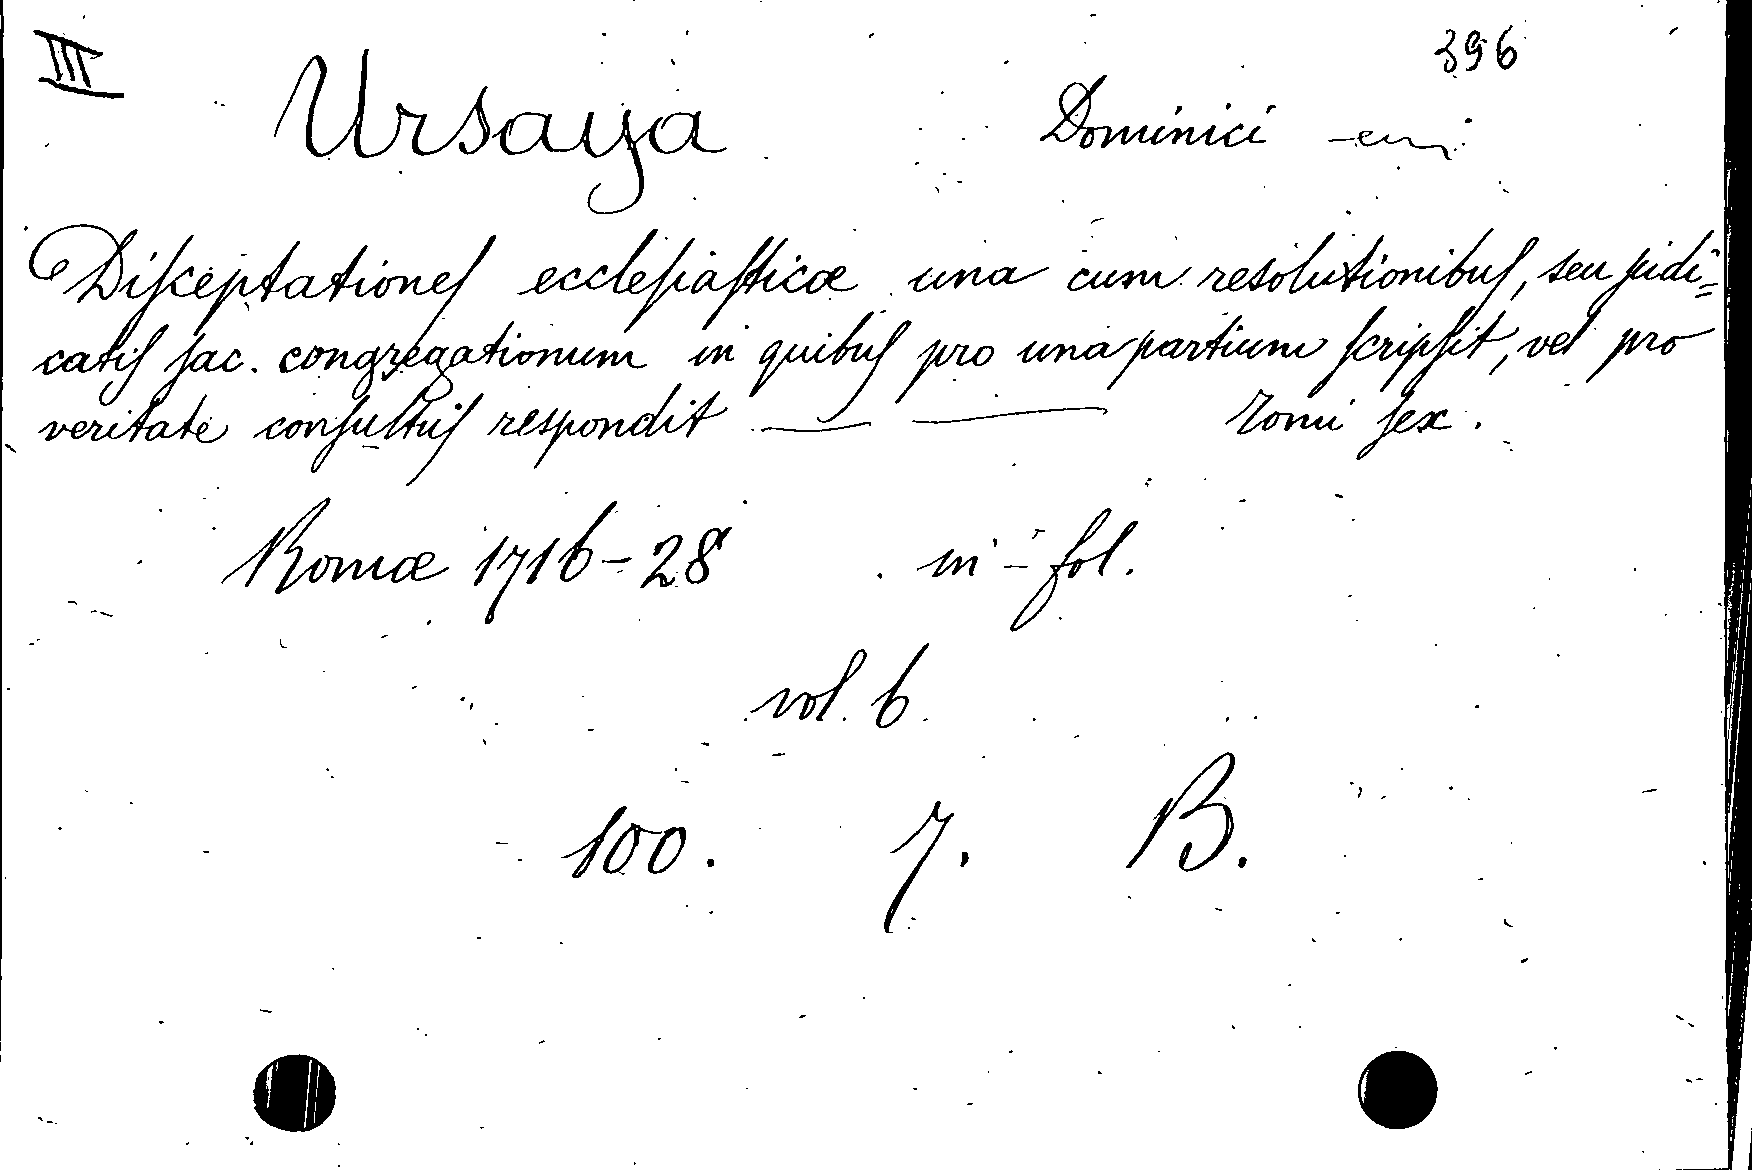 III 396
Ursaya Dominici
Disceptationes ecclesiasticæ una cum resolutionibus, seu judi=
catis sac. congregationum in quibus pro una partium scripsit, vel pro
veritate consultus respondit — — Tomi sex.
Romæ 1716-28 in-fol.
vol. 6
100. 7. B.